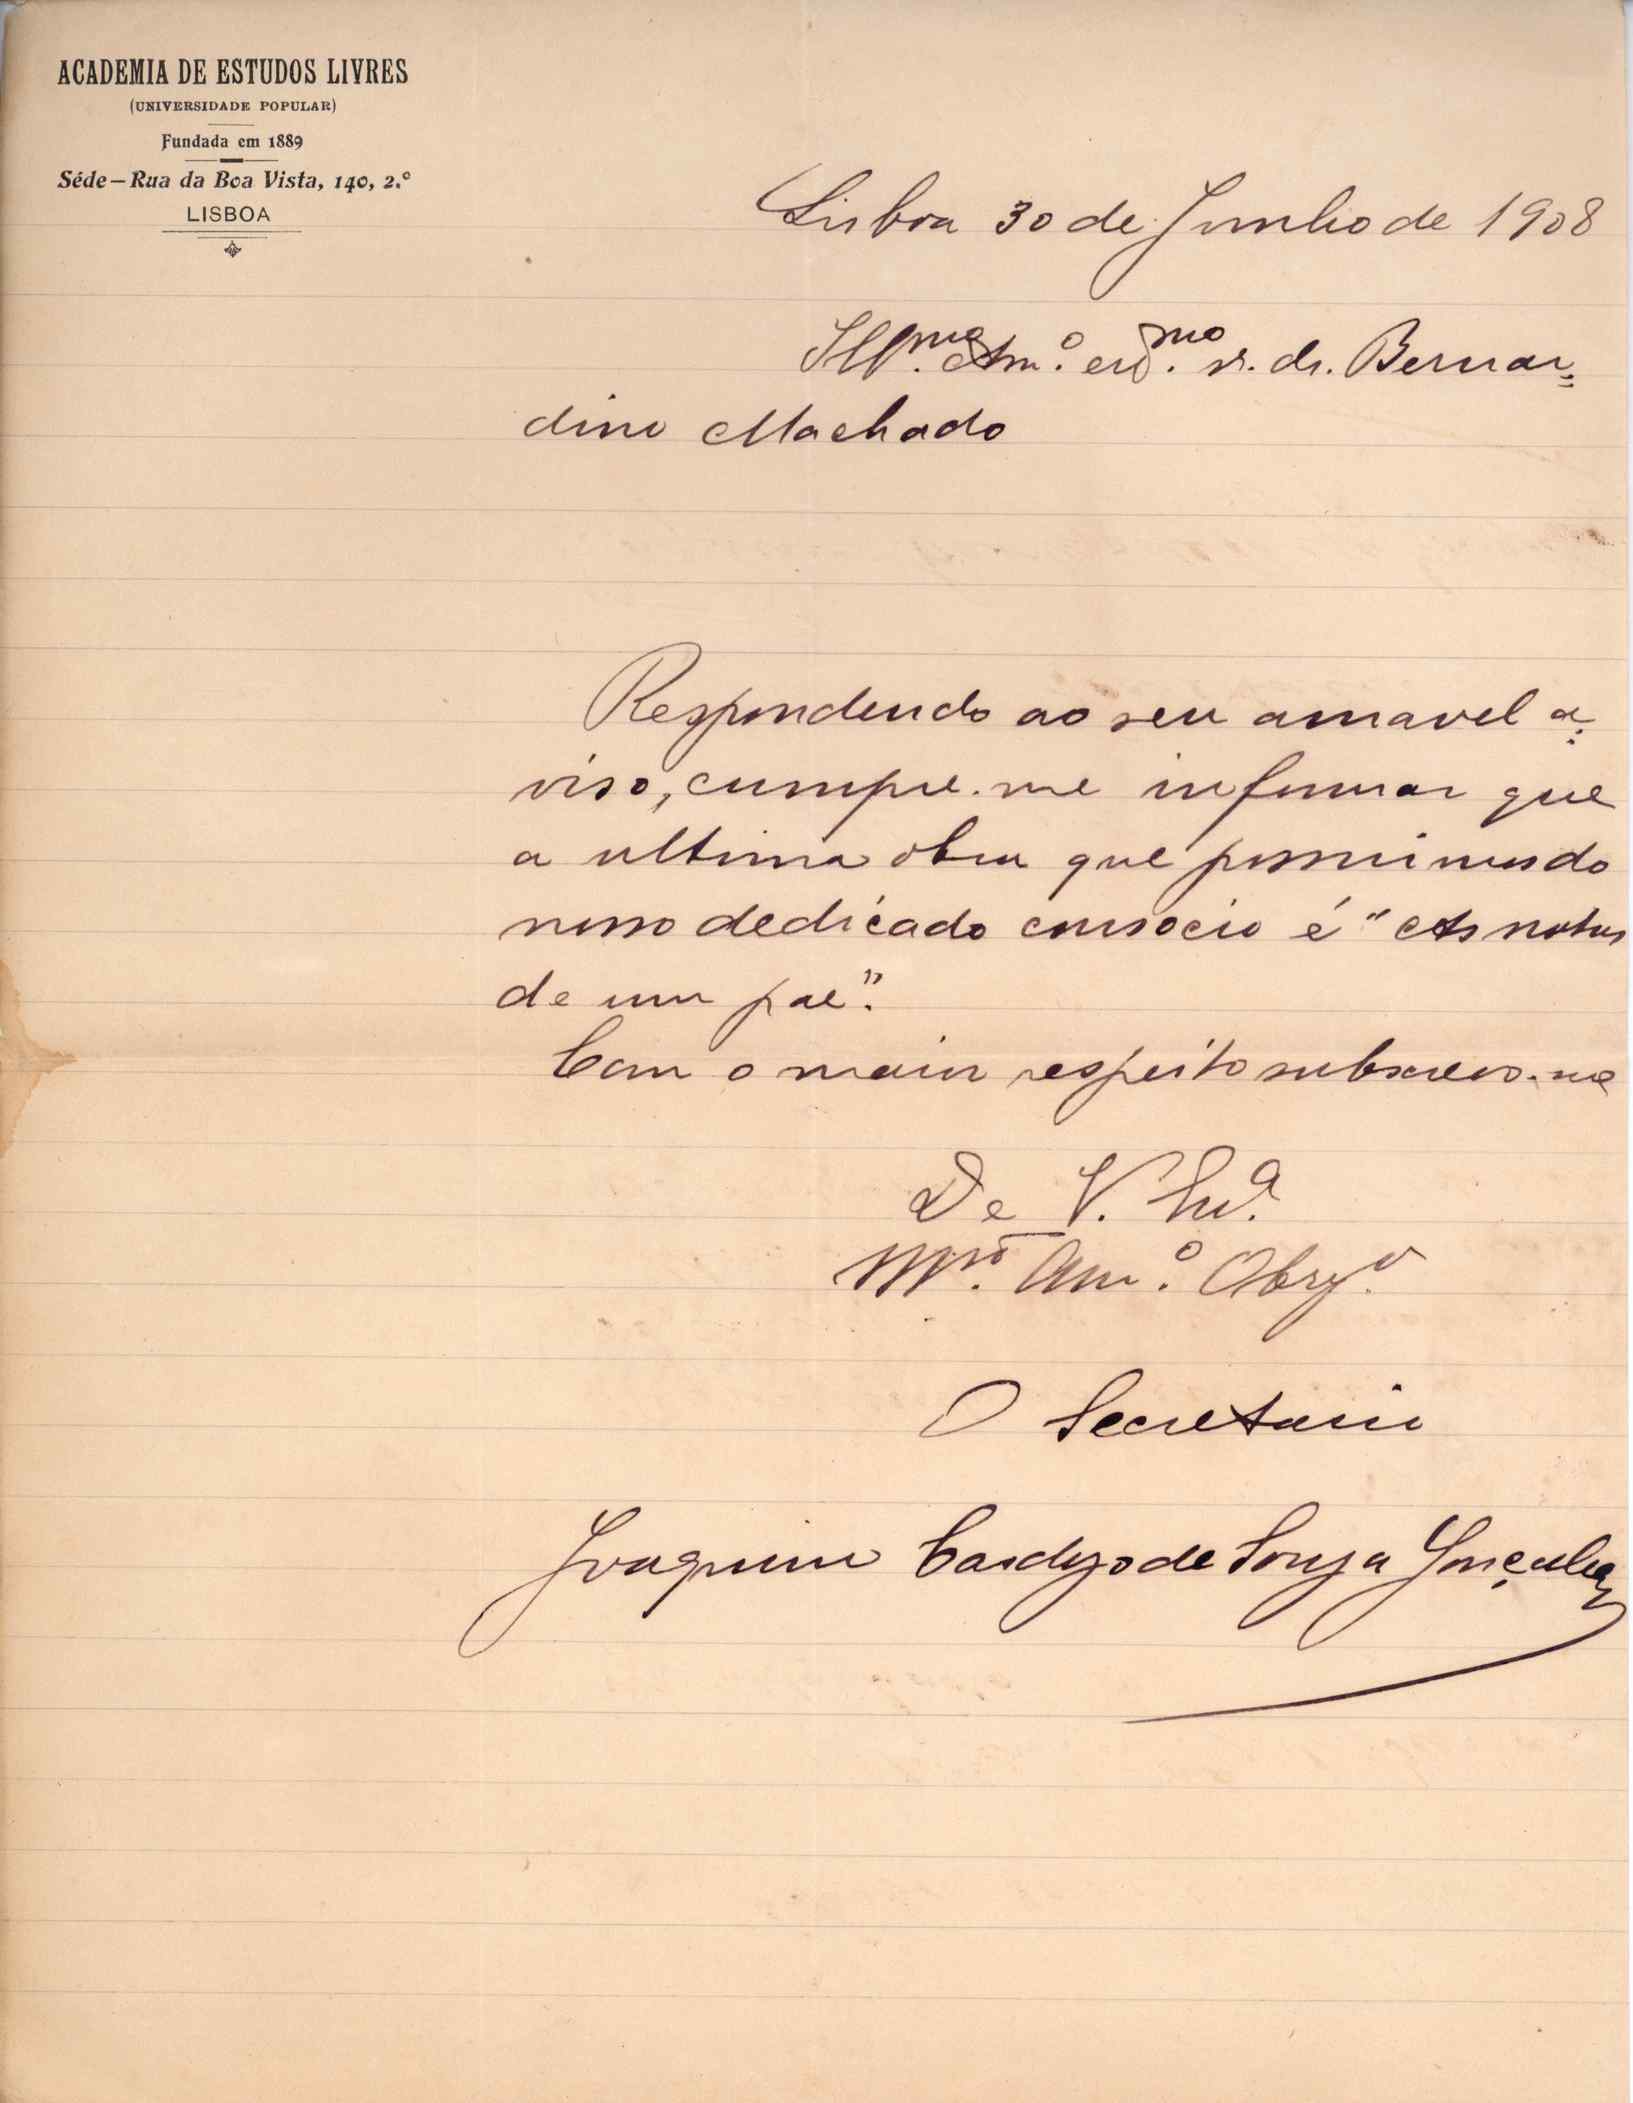 ACADEMIA DE ESTUDOS LIVRES
(UNIVERSIDADE POPULAR)
Fundada em 1889
Séde—Rua da Boa Vista, 140, 2.º
LISBOA
Lisboa 30 de Junho de 1908
Ill.mo Am.o e sr. dr. Bernar=
dino Machado
Respondendo ao seu amavel a=
viso, cumpre-me informar que
a ultima obra que possuimos do
nosso dedicado consocio é "As notas
de um pae".
Com o maior respeito subscrevo-me
De V. Ex.a
M.to Am.o Obrg.o
O Secretario
Joaquim Cardozo de Souza Gonçalves